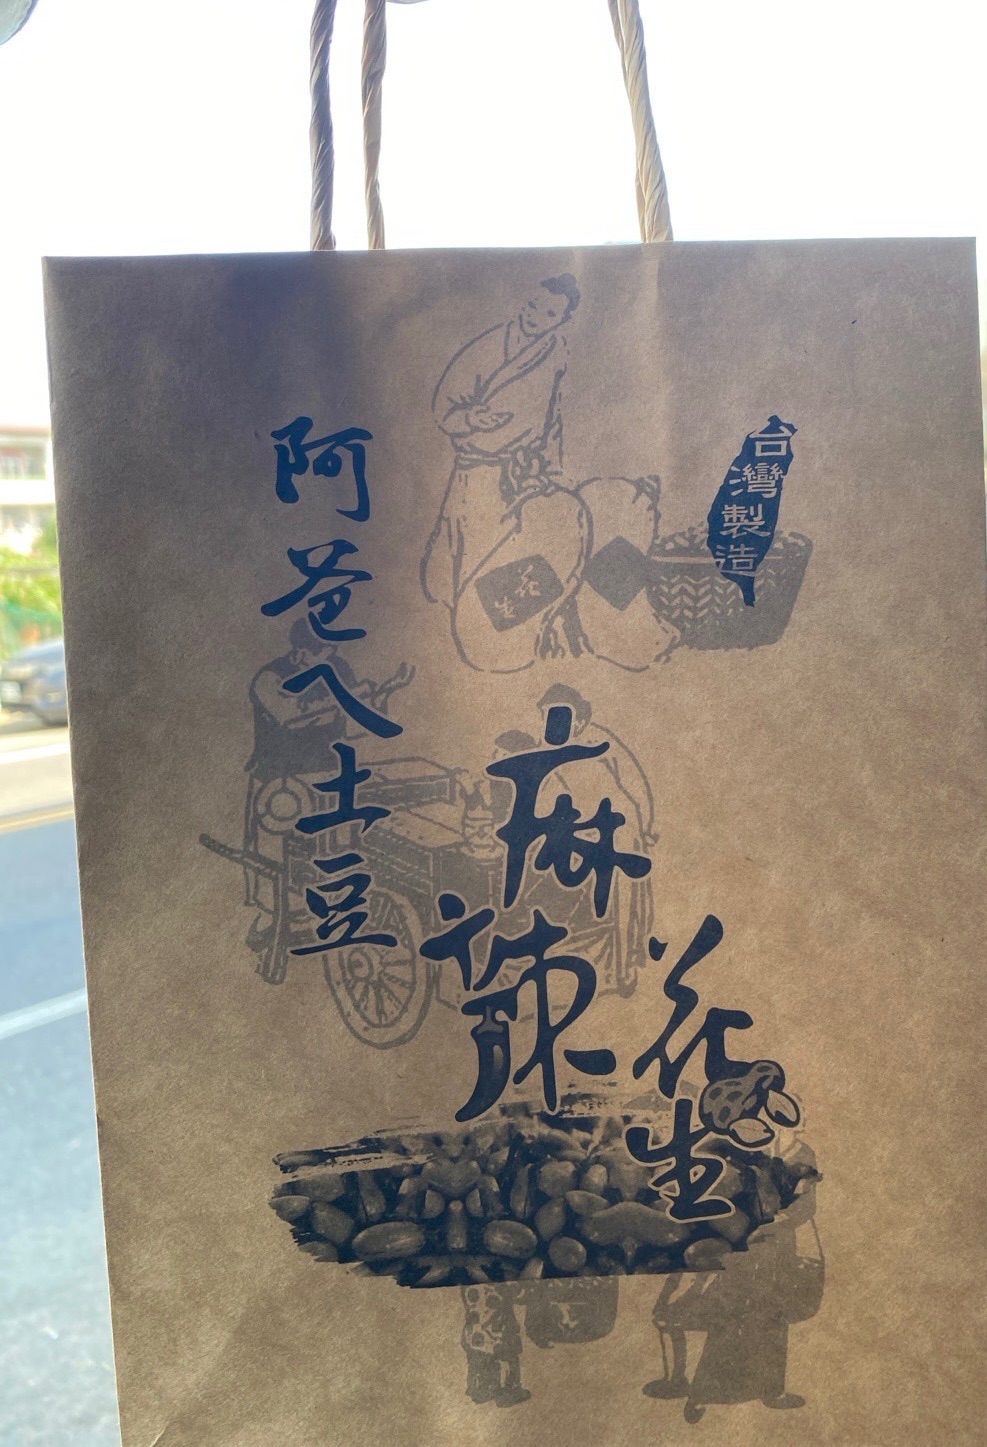 阿爸ㄟ土豆
花生
台灣製造
麻辣花生